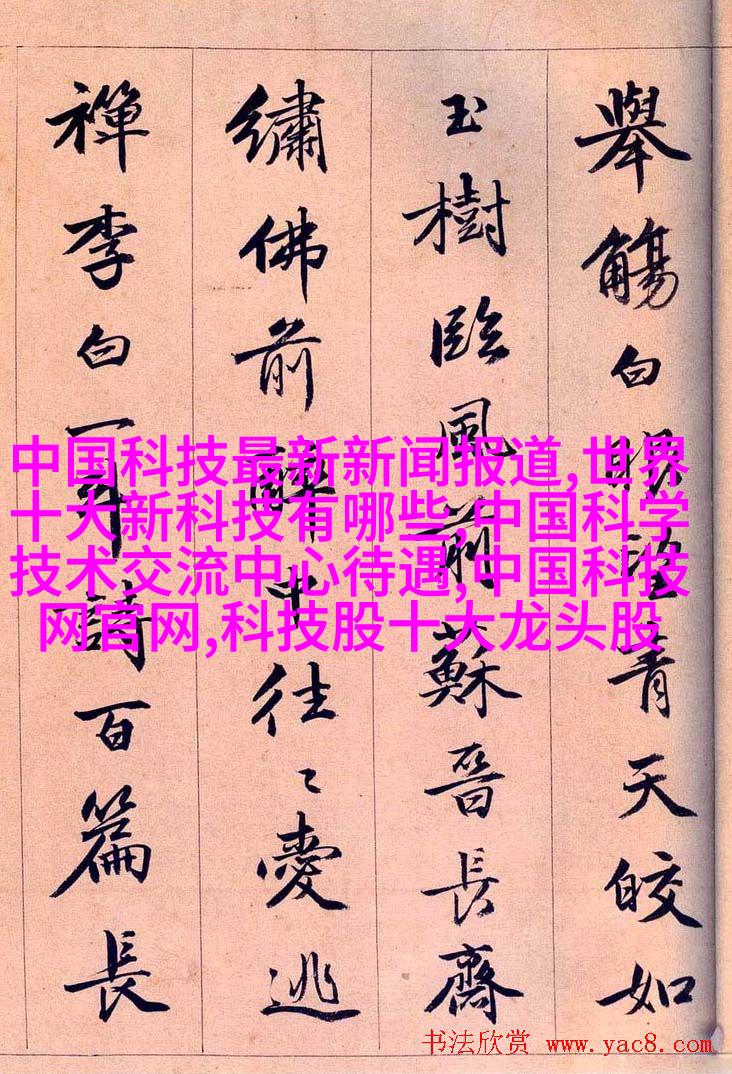 舉觴白眼望青天皎如
玉樹臨風前蘇晉長齋
繡佛前醉中往〻愛逃
禪李白一斗詩百篇長
中国科技最新新闻报道,世界
十大新科技有哪些,中国科学
技术交流中心待遇,中国科技
网官网,科技股十大龙头股
书法欣赏 www.yac8.com